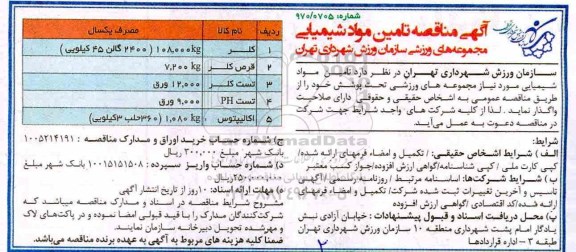 شماره: ۹۷۰/۰۷۰۵
آگهی مناقصه تامین مواد شیمیایی
مجموعه‌های ورزشی سازمان ورزش شهرداری تهران
سازمان ورزش شهرداری تهران در نظر دارد تامین مواد
شیمیایی مورد نیاز مجموعه های ورزشی تحت پوشش خود را از
طریق مناقصه عمومی به اشخاص حقیقی و حقوقی دارای صلاحیت
واگذار نماید. لذا از کلیه شرکت های واجد شرایط جهت شرکت
در مناقصه دعوت به عمل می‌آید.
شرایط:
الف) شرایط اشخاص حقیقی: / تکمیل و امضاء فرمهای ارائه شده/
کپی کارت ملی / کپی شناسنامه/گواهی ارزش افزوده/جواز کسب معتبر
ب) شرایط شرکت‌ها: اساسنامه مرتبط / روزنامه رسمی / آگهی
تاسیس و آخرین تغییرات ثبت شده شرکت/ تکمیل و امضاء فرمهای
ارائه شده/کد اقتصادی /گواهی ارزش افزوده
پ) محل دریافت اسناد و قبول پیشنهادات: خیابان آزادی نبش
یادگار امام پشت شهرداری منطقه ۱۰ سازمان ورزش شهرداری تهران
طبقه ۳ - اداره قراردادها
ردیف نام کالا مصرف یکسال
۱ کلر ۱۰۸,۰۰۰kg (۲۴۰۰ گالن ۴۵ کیلویی)
۲ قرص کلر ۷,۲۰۰kg
۳ تست کلر ۱۲,۰۰۰ ورق
۴ تست PH ۹,۰۰۰ ورق
۵ اکالیپتوس ۱,۰۸۰kg (۳۶۰حلب ۳کیلویی)
ج) شماره حساب خرید اوراق و مدارک مناقصه: ۱۰۰۵۲۱۴۱۹۱
بانک شهر مبلغ ۳۰۰,۰۰۰ ریال
د) شماره حساب واریز سپرده: ۱۰۰۱۵۱۵۱۵۰۸ بانک شهر مبلغ
ه) مهلت ارائه اسناد: ۱۰روز از تاریخ انتشار آگهی
مشروح شرایط مناقصه در اسناد و مدارک مناقصه میباشد که
شرکت‌کنندگان مدارک را با قید قبولی امضا نموده و در پاکت‌های لاک
و مهرشده تحویل دبیرخانه سازمان نمایند.
ضمنا کلیه هزینه های مربوط به آگهی به عهده برنده مناقصه می‌باشد.
۲